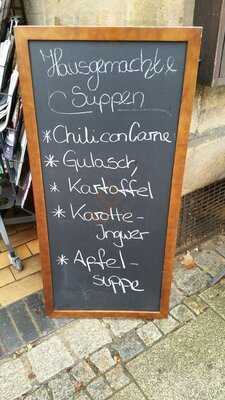 Hausgemachte
Suppen
*Chili con Carne
*Gulasch
*Kartoffel
*Karotte-
Ingwer
*Apfel-
suppe